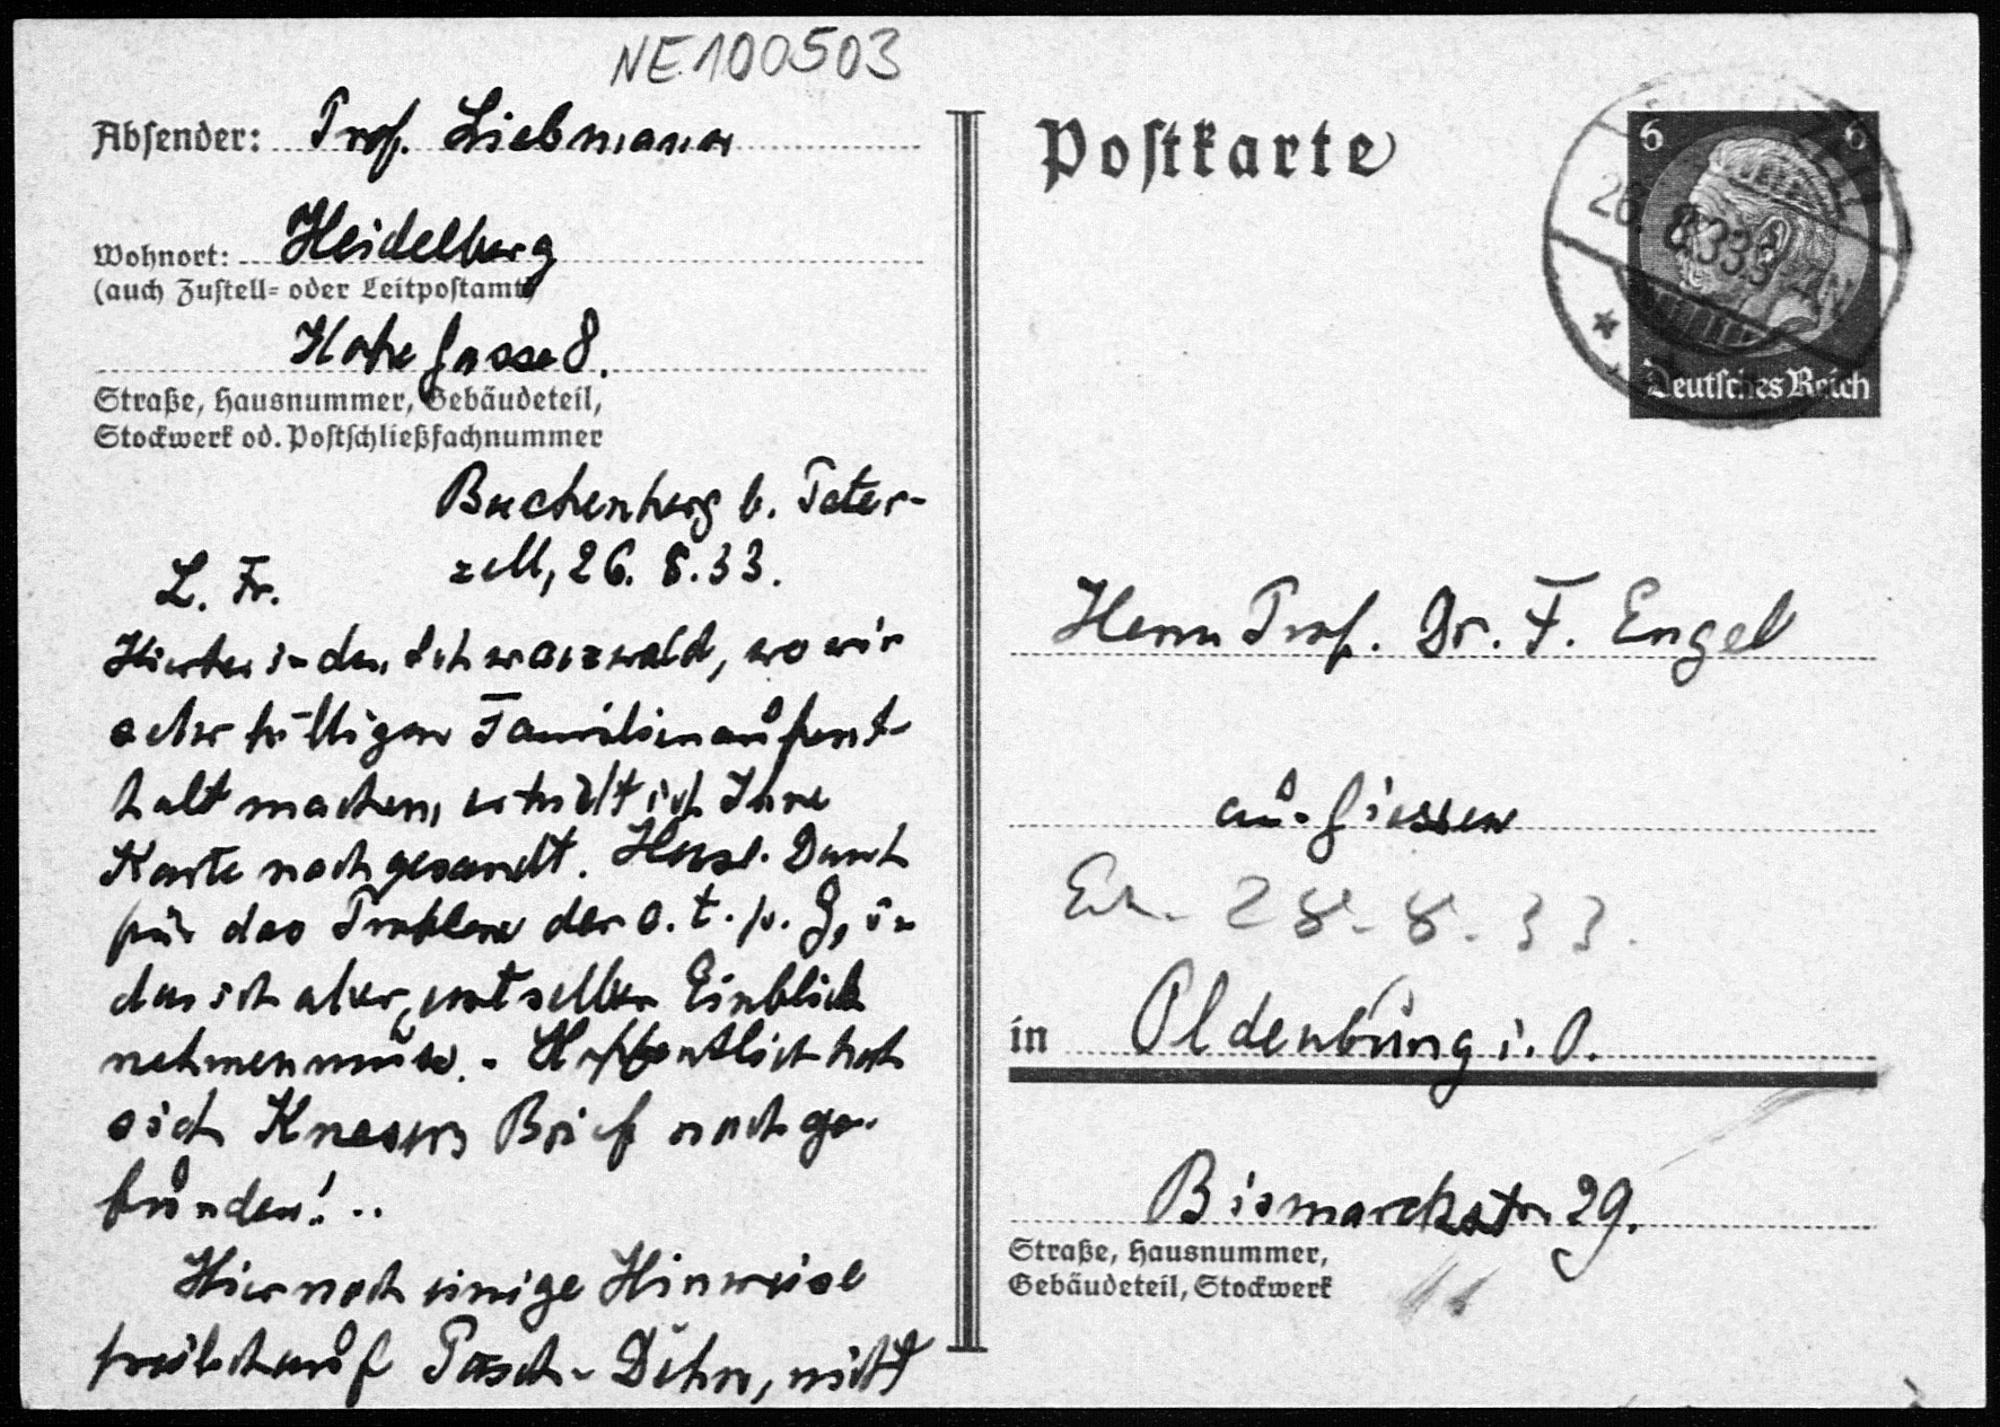 NE 100503
Absender: Prof. Liebmann
Wohnort: Heidelberg
(auch Zustell- oder Leitpostamt)
Hohe Gasse 8.
Straße, Hausnummer, Gebäudeteil,
Stockwerk od. Postschließfachnummer
Buchenberg b. Peter-
zell, 26. 8. 33.
L. Fr.
Hierher in den Schwarzwald, wo wir
sehr billigen Familienaufent-
halt machen, erhielt ich Ihre
Karte nachgesandt. Herzl. Dank
für das Problem der o. t. p. G, in
das ich aber erst selber Einblick
nehmen muss. - Hoffentlich hat
sich Knesers Brief noch ge-
funden! ..
Hier noch einige Hinweise
freilich auf Pasch-Dehn, nicht
Postkarte
6 6
26.8.33
Deutsches Reich
Herrn Prof. Dr. F. Engel
aus Giessen
28.8.33.
in Oldenburg i. O.
Bismarckstr. 29.
Straße, Hausnummer,
Gebäudeteil, Stockwerk